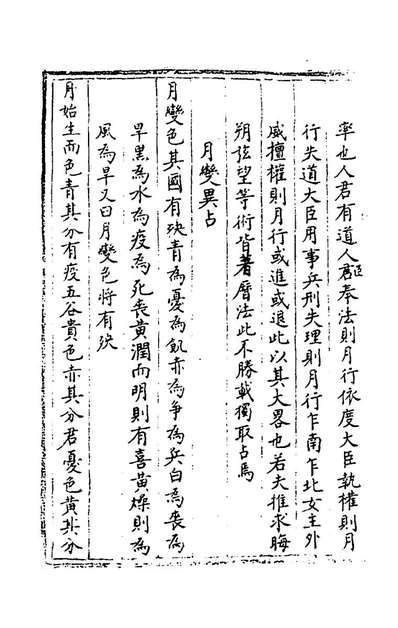 率也人君有道人臣奉法則月行依度大臣執權則月
行失道大臣用事兵刑失理則月行乍南乍北女主外
戚擅權則月行或進或退此以其大畧也若夫推求晦
朔弦望等術皆著曆法此不勝載獨取占焉
月變異占
月變色其國有殃青為憂為飢赤為争為兵白為喪為
旱黑為水為疫為死喪黃潤而明則有喜黃燥則為
風為旱又曰月變色將有殃
月始生而色青其分有疫五谷貴色赤其分君憂色黃其分